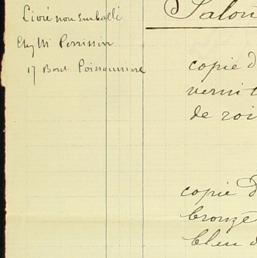 Livré non emballé
Chez Mr Perrissin
17 Bard Poissonnière
Salon
copie d
verni
de roi
copie d
bronze
bleu d